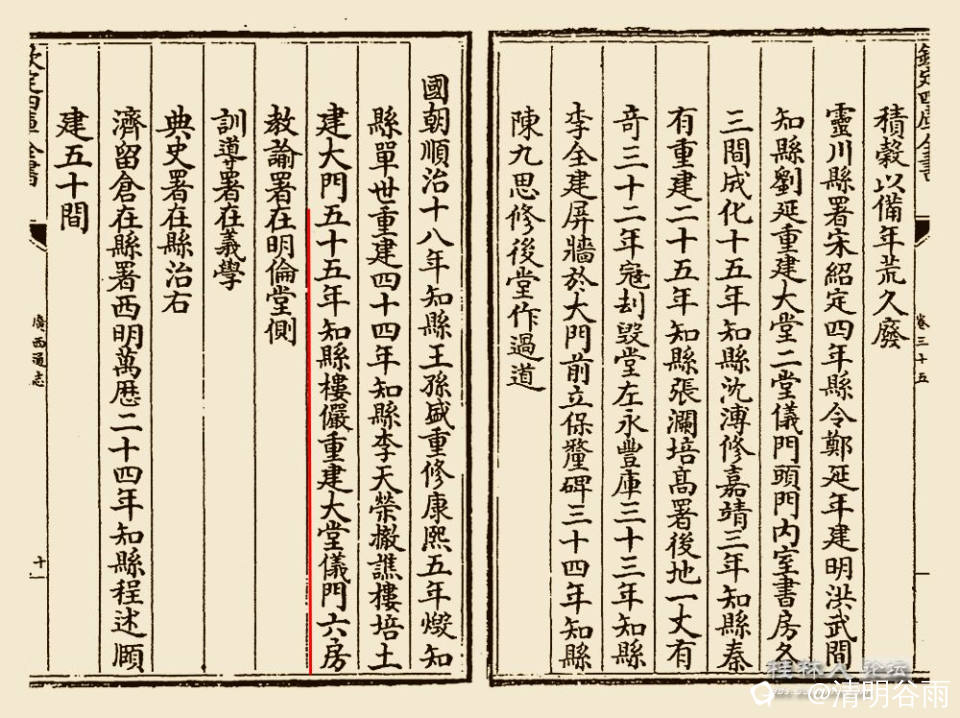 欽定四庫全書
卷三十五
積穀以備年荒久廢
靈川縣署宋紹定四年縣令鄭延年建明洪武間
知縣劉延重建大堂二堂儀門頭門內室書房久
三間成化十五年知縣沈溥修嘉靖三年知縣秦
有重建二十五年知縣張瀾培髙署後地一丈有
竒三十二年冦刦毁堂左永豐庫三十三年知縣
李全建屏牆於大門前立保釐碑三十四年知縣
陳九思修後堂作過道
國朝順治十八年知縣王孫盛重修康熙五年燬知
縣單世重建四十四年知縣李天榮撤譙樓培土
建大門五十五年知縣樓儼重建大堂儀門六房
教諭署在明倫堂側
訓導署在義學
典史署在縣治右
濟留倉在縣署西明萬厯二十四年知縣程述
建五十間
欽定四庫全書
廣西通志
十一
桂林人论坛
@清明谷雨